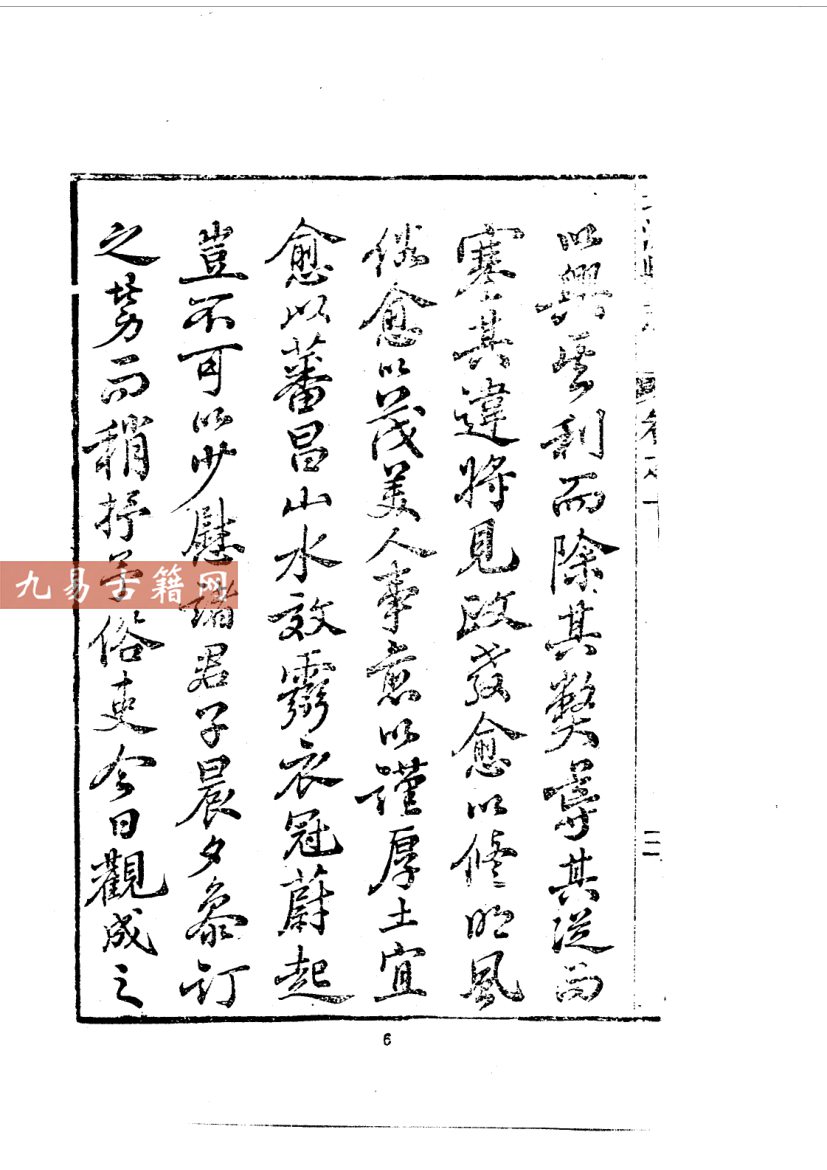 以興其利而除其獘導其從而
塞其違將見政教愈以脩明風
俗愈以茂美人事愈以謹厚土宜
愈以蕃昌山水效靈衣冠蔚起
豈不可以少慰諸君子晨夕叅訂
之勞而稍抒予俗吏今日觀成之
三
6
九易古籍网